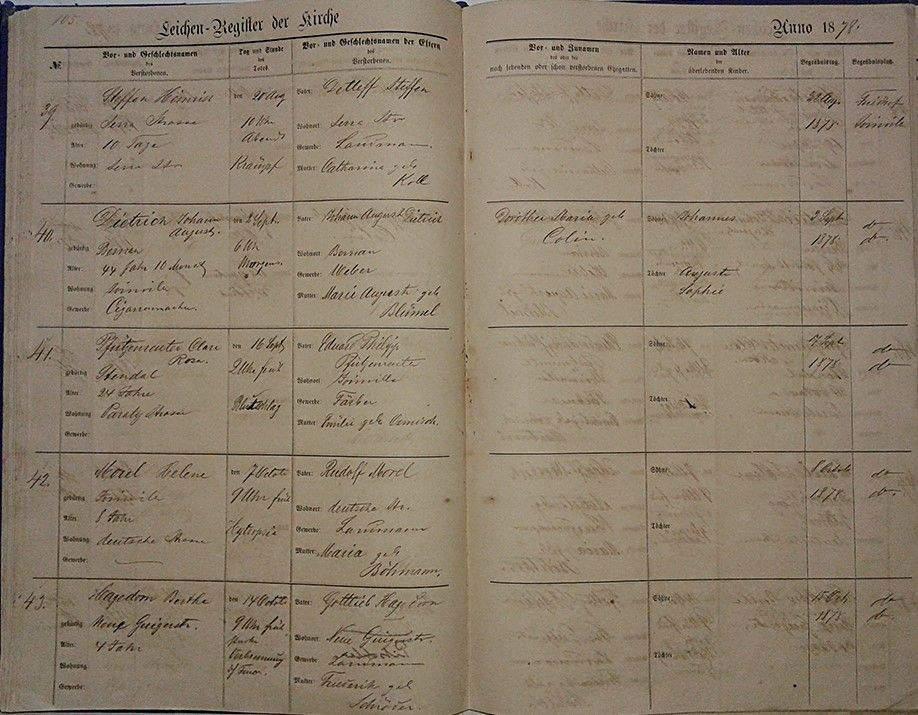 105.
Leichen-Register der Kirche
Anno 1878.
№
Vor- und Geschlechtsnamen
des
Verstorbenen.
Tag und Stunde
des
Todes.
Vor- und Geschlechtsnamen der Eltern
des
Verstorbenen.
Vor- und Zunamen
des oder der
noch lebenden oder schon verstorbenen Ehegatten.
Namen und Alter
der
überlebenden Kinder.
Begräbnißtag.
Begräbnißplatz.
39.
Steffen Hinrius
gebürtig Serra Strasse
Alter: 10 Tage
Wohnung: Serra Str
Gewerbe:
den 20 Aug
10 Uhr
Abends
Krämpf
Vater: Detleff Steffen
Wohnort: Serra Str
Gewerbe: Landmann.
Mutter: Catharina geb
Koll
Söhne:
Töchter
22 Aug.
1878
Friedhof
Joinvile
40.
Dietrich Johann
August.
gebürtig
Alter: 44 Jahr 10 Monat
Wohnung Joinvile
Gewerbe: Cigarrenmacher.
den 2 Sept
6 Uhr
Morgens
Vater: Johann August Dietrich
Wohnort:
Gewerbe: Weber
Mutter: Marie August geb
Blümel
Dorothea Maria geb
Colin.
Söhne: Johannes
Töchter August
Sophie
3 Sept
1878
do
do.
41.
Pfützenreuter Clara
Rosa.
gebürtig Stendal
Alter: 24 Jahre
Wohnung Paraty Strasse
Gewerbe:
den 16 Sept
2 Uhr früh
Vater: Eduard Philipp
Pfützenreuter
Wohnort Joinville
Gewerbe: Färber
Mutter: Emilie geb
Söhne:
Töchter
7 Sept
1878
do
do
42.
Morel Helene
gebürtig Joinvile
Alter: 8 Jahr
Wohnung: deutsche Strasse
Gewerbe:
den 7 Octob
9 Uhr früh
Vater: Rudolf Morel
Wohnort: deutsche Str.
Gewerbe: Landmann
Mutter: Maria geb
Böhmann.
Söhne:
Töchter
8 Octob
1878
do
do.
43.
Hagedorn Bertha
gebürtig Neue Guigerstr.
Alter: 4 Jahr
Wohnung.
Gewerbe:
den 14 Octob
9 Uhr früh
Verbrennung
Vater: Gottlieb Hagedorn
Wohnort: Neue Guigerstr.
Gewerbe: Landmann
Mutter: Frederik geb
Schröder.
Söhne:
Töchter
15 Octb
1878
do
do.